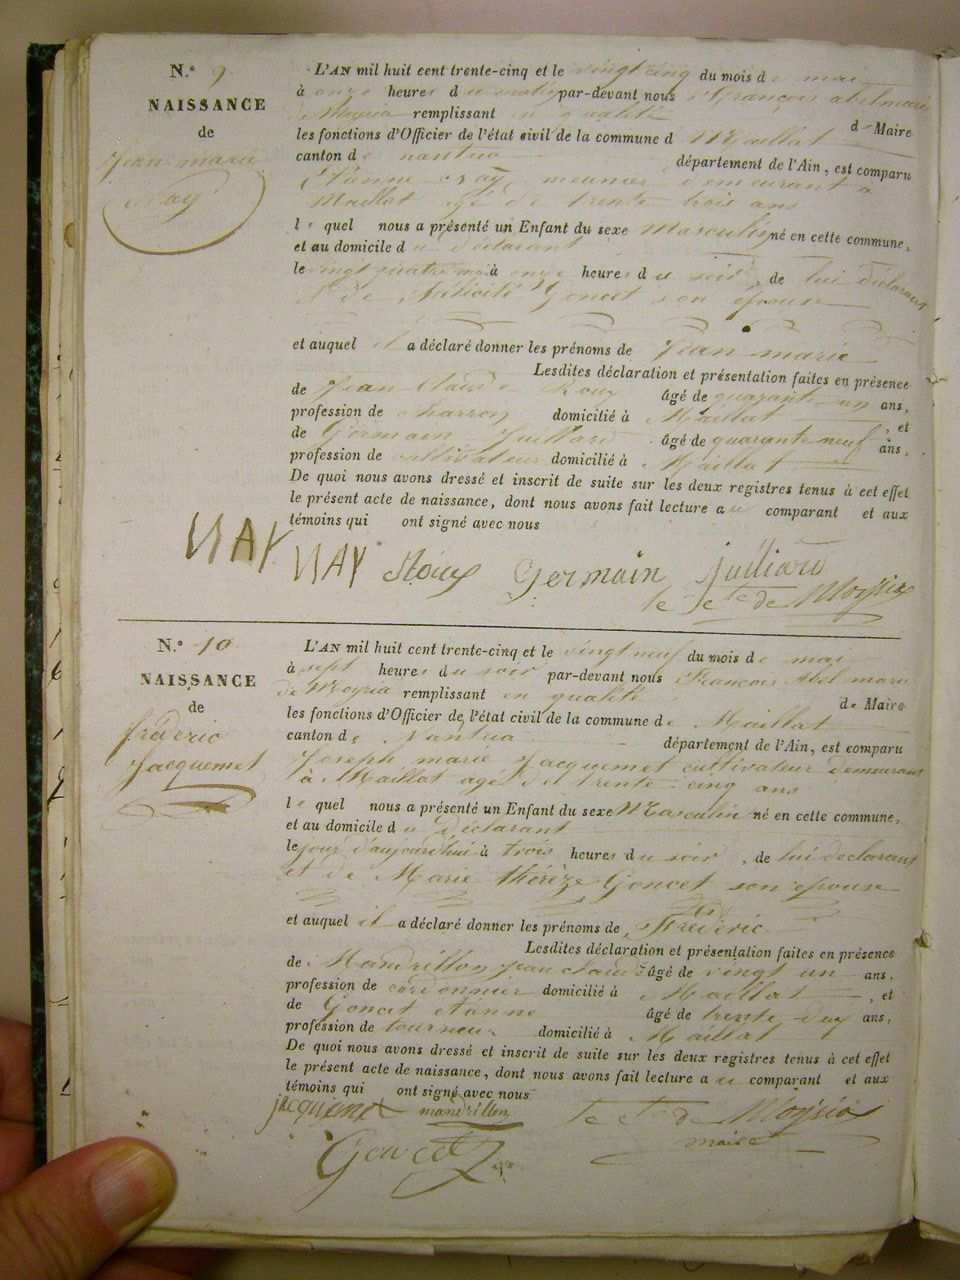 N.° 9
NAISSANCE
de
Jean marie
Nay
L'AN mil huit cent trente-cinq et le vingt cinq du mois de mai
à onze heures du matin par-devant nous François abel marie
de Moyria remplissant en qualité de Maire
les fonctions d'Officier de l'état civil de la commune d Maillat
canton de nantua département de l'Ain, est comparu
Etienne Nay, meunier demeurant à
Maillat agé de trente trois ans
le quel nous a présenté un Enfant du sexe Masculin né en cette commune,
et au domicile du déclarant
le vingt quatre mai à onze heures du soir, de lui déclarant
et de Félicité Goncet son épouse
et auquel il a déclaré donner les prénoms de Jean marie
Lesdites déclaration et présentation faites en présence
de Jean Claude Roux âgé de quarante un ans,
profession de charron domicilié à Maillat, et
de Germain Juilliard âgé de quarante neuf ans.
profession de cultivateur domicilié à Maillat
De quoi nous avons dressé et inscrit de suite sur les deux registres tenus à cet effet
le présent acte de naissance, dont nous avons fait lecture au comparant et aux
témoins qui ont signé avec nous
NAY NAY Roux Germain Juilliard
le Cte de Moyria
N.° 10
NAISSANCE
de
fréderic
Jacquemet
L'AN mil huit cent trente-cinq et le vingt neuf du mois de mai
à sept heures du soir par-devant nous François Abel marie
de Moyria remplissant en qualité de Maire
les fonctions d'Officier de l'état civil de la commune de Maillat
canton de Nantua département de l'Ain, est comparu
Joseph marie Jacquemet cultivateur demeurant
à Maillat agé de trente-cinq ans
le quel nous a présenté un Enfant du sexe Masculin né en cette commune,
et au domicile du déclarant
le jour d'aujourd'hui à trois heures du soir, de lui declarant
et de Marie thérèze Goncet son epouse
et auquel il a déclaré donner les prénoms de Fréderic
Lesdites déclaration et présentation faites en présence
de Mandrillon jean claude âgé de vingt un ans,
profession de cordonnier domicilié à Maillat, et
de Goncet âgé de trente deux ans,
profession de tourneur domicilié à Maillat
De quoi nous avons dressé et inscrit de suite sur les deux registres tenus à cet effet
le présent acte de naissance, dont nous avons fait lecture au comparant et aux
témoins qui ont signé avec nous
jacquemet mandrillon le Cte de Moyria
maire
Goncet